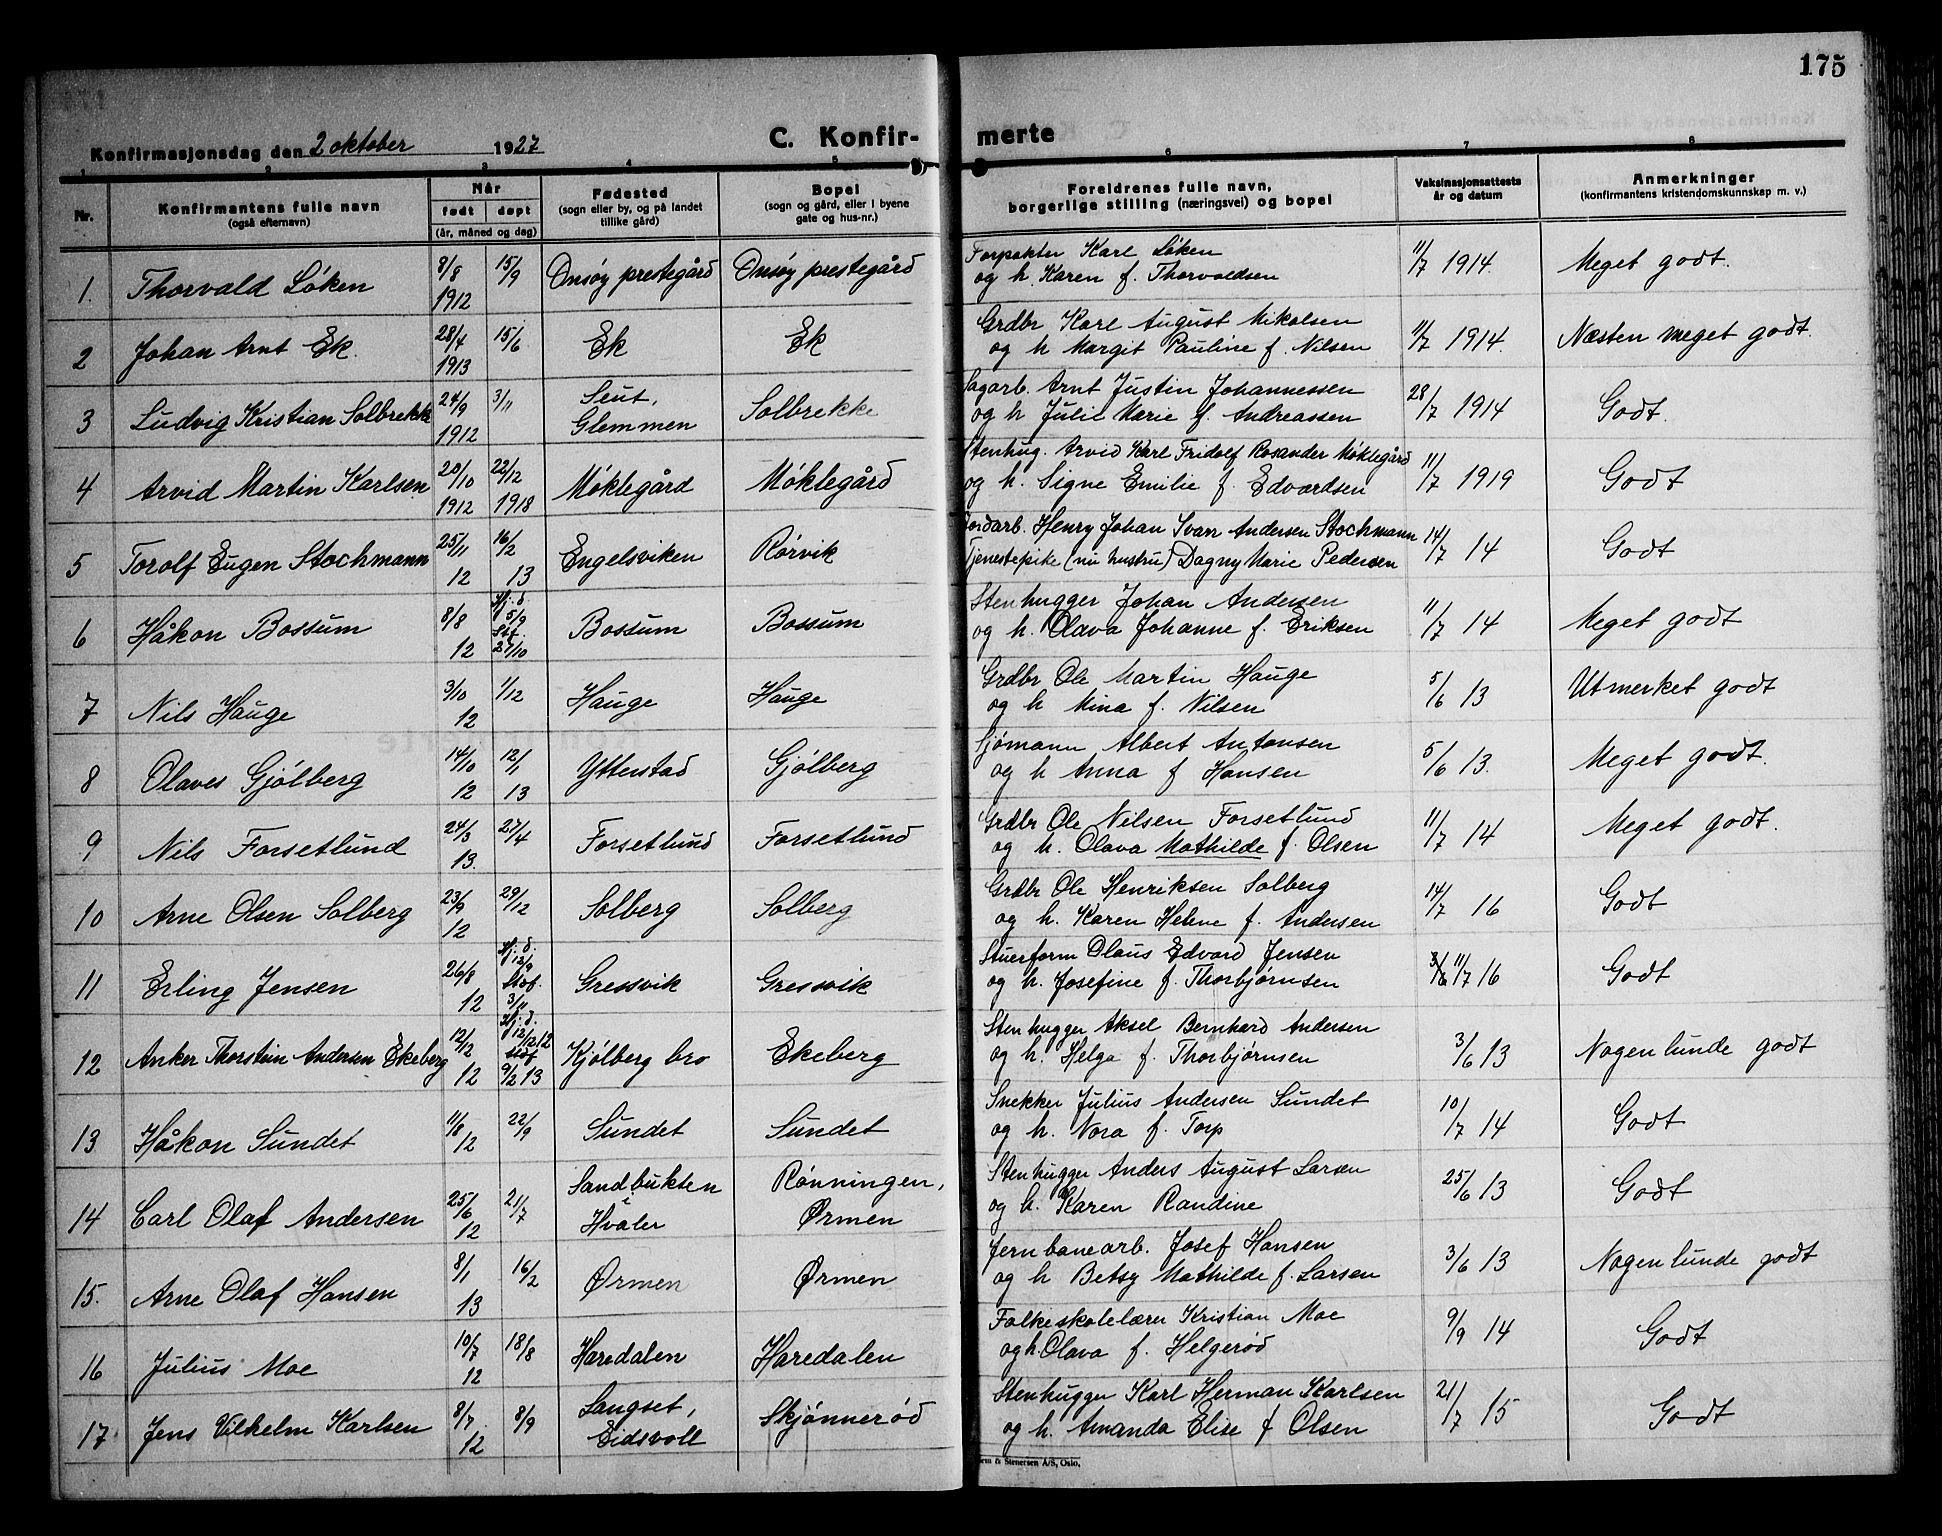 175
Konfirmasjonsdag den 2 oktober 1927
C. Konfir- merte
1 2 3 4 5 6 7 8
Nr.
Konfirmantens fulle navn
(også efternavn)
Når
født døpt
(år, måned og dag)
Fødested
(sogn eller by, og på landet
tillike gård)
Bopel
(sogn og gård, eller i byene
gate og hus-nr.)
Foreldrenes fulle navn,
borgerlige stilling (næringsvei) og bopel
Vaksinasjonsattests
år og datum
Anmerkninger
(konfirmantens kristendomskunnskap m. v.)
1. Thorvald Löken 8/8 1912 15/9 Onsöy prestegård Onsöy prestegård
Forpakter Karl Löken
og h. Karen f. Thorvaldsen 11/7 1914. Meget godt.
2 Johan Arnt Ek. 28/4 1913 15/6 Ek Ek
Grdbr Karl August Mikalsen
og h Margit Pauline f. Nilsen 11/7 1914. Næsten meget godt.
3 Ludvig Kristian Solbrekk 24/9 1912 3/11 Seut, Glemmen Solbrekke
Sagarb. Arnt Justin Johannessen
og h Julie Marie f. Andreassen 28/7 1914 Godt.
4 Arvid Martin Karlsen 20/10 1912 22/12 1918 Möklegård Möklegård
Stenhug. Arvid Karl Fridolf Rosander Möklegård
og h. Signe Emilie f. Edvardsen 11/7 1919 Godt
5 Torolf Eugen Stochmann 25/11 12 16/2 13 Engelsviken Rörvik
Jordarb. Henry Johan Ivarr Andersen Stochmann
Tjenestepike (nu hustru) Dagny Marie Pedersen 14/7 14 Godt
6 Håkon Bossum 8/8 12 Hj. d. 5/9 Stf. 27/10 Bossum Bossum
Stenhugger Johan Andersen
og h. Olava Johanne f. Eriksen 11/7 14 Meget godt
7 Nils Hauge 3/10 12 1/12 Hauge Hauge
Grdbr Ole Martin Hauge
og h Mina f. Nilsen 5/6 13 Utmerket godt
8 Olaves Gjölberg 14/10 12 12/1 13 Ytterstad Gjölberg
Sjömann Albert Antonsen
og h Anna f Hansen 5/6 13. Meget godt.
9 Nils Forsetlund 24/3 13. 27/4 Forsetlund Forsetlund
Grdbr Ole Nilsen Forsetlund
og h. Olava Mathilde f. Olsen 11/7 14 Meget godt.
10 Arne Olsen Solberg 23/9 12 29/12 Solberg Solberg
Grdbr Ole Henriksen Solberg
og h. Karen Helene f. Andersen 14/7 16 Godt
11 Erling Jensen 26/8 12 Hj. d. 13/9 Stof. 3/11 Gressvik Gressvik
Stuerform Olaus Edvard Jensen
og h. Josefine f. Thorbjørnsen 11/7 16 Godt
12 Anker Thorstein Andersen Ekeberg 12/12 12 Hj. d. 12/12 12 Stof 9/2 13 Kjölberg bro Ekeberg
Stenhugger Aksel Bernhard Andersen
og h. Helga f. Thorbjørnsen 3/6 13 Nogenlunde godt
13 Håkon Sundet 11/8 12 22/9 Sundet Sundet
Snekker Julius Andersen Sundet
og h. Nora f. Torp 10/7 14 Godt
14 Carl Olaf Andersen 25/6 12 21/7 Sandbukten i Hvaler Rönningen, Ørmen
Stenhugger Anders August Larsen
og h. Karen Randine 25/6 13 Godt
15. Arne Olaf Hansen 8/1 13 16/2 Ørmen Ørmen
Jernbanearb. Josef Hansen
og h Betsy Mathilde f. Larsen 3/6 13 Nogenlunde godt
16 Julius Moe 10/7 12 18/8 Haredalen Haredalen
Folkeskolelærer Kristian Moe
og h. Olava f. Helgeröd 9/9 14 Godt
17 Jens Vilhelm Karlsen 8/7. 12 8/9 Langset, Eidsvoll Skjönneröd
Stenhugger Karl Herman Karlsen
og h. Amanda Elise f Olsen 21/7 15 Godt
& Stenersen A/S, Oslo.